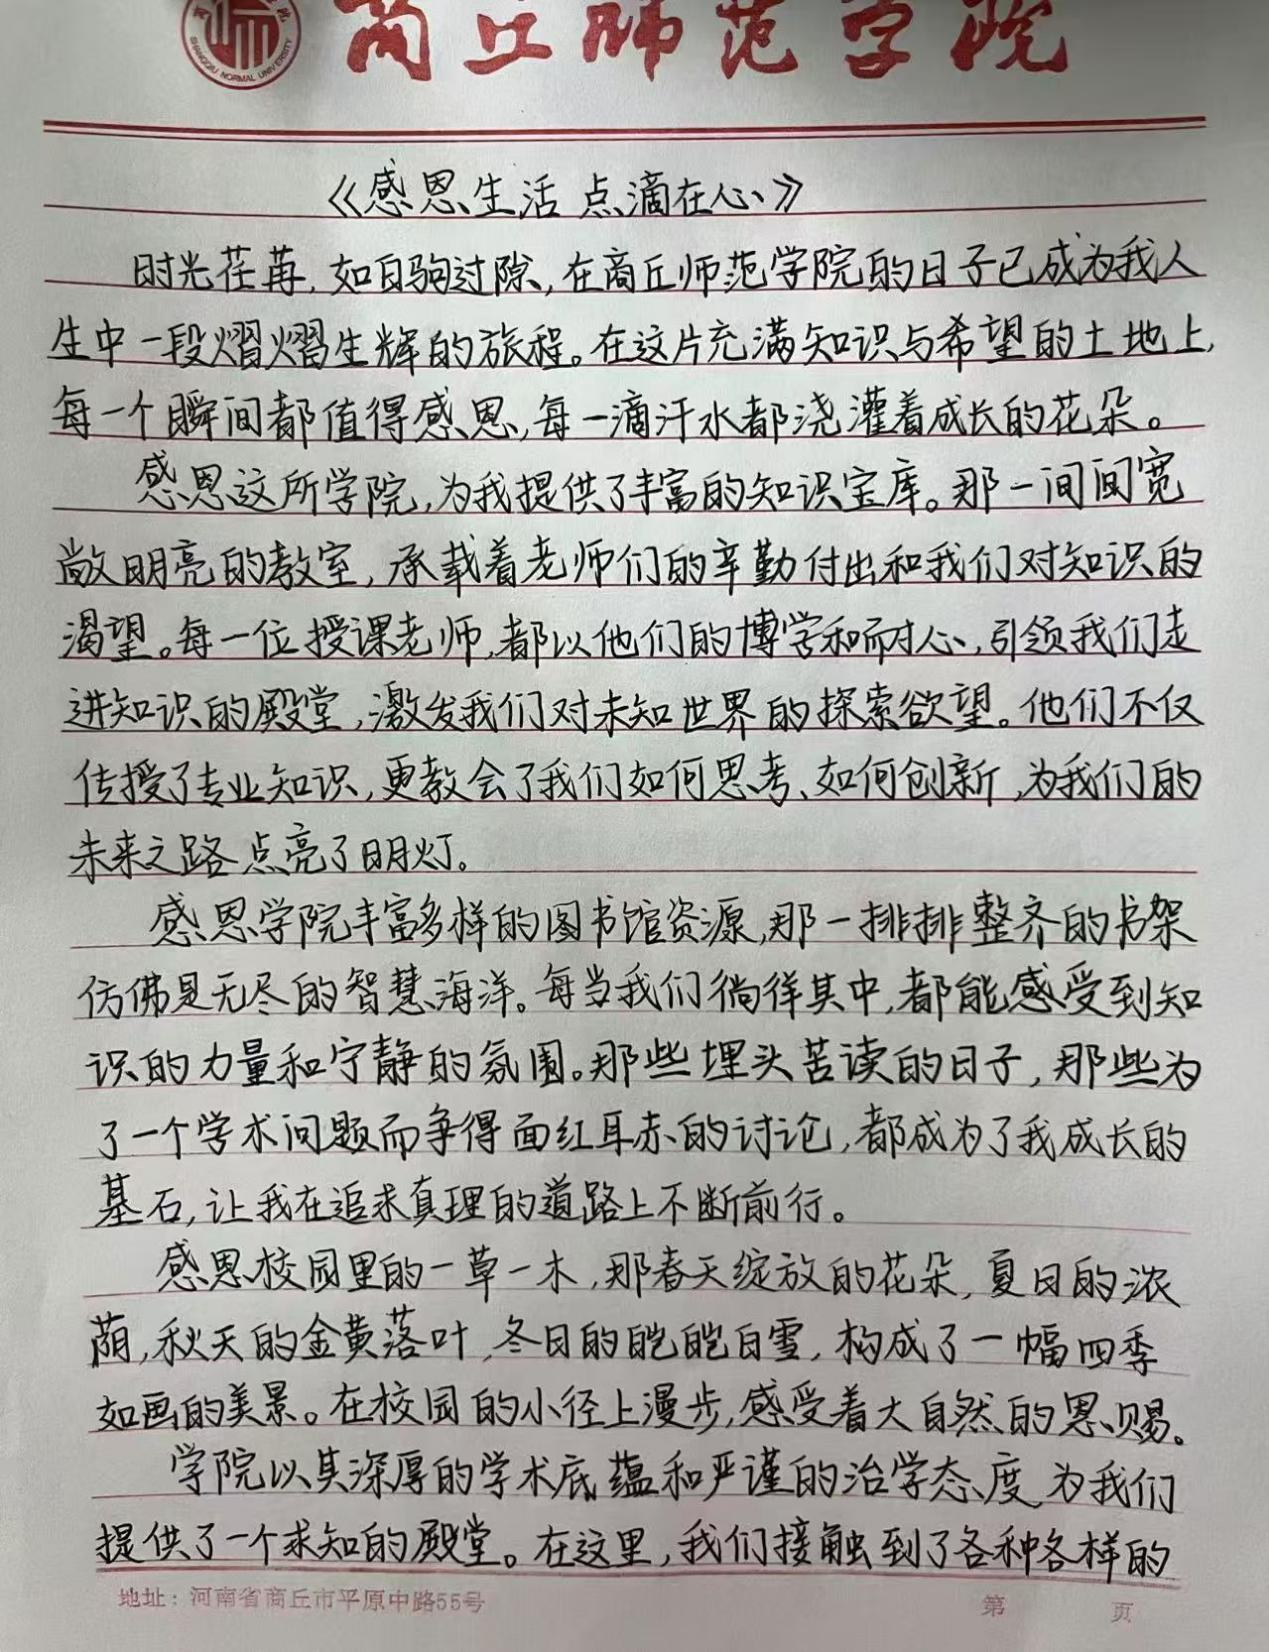 商丘师范学院
SHANGQIU NORMAL UNIVERSITY
《感恩生活 点滴在心》
时光荏苒,如白驹过隙,在商丘师范学院的日子已成为我人
生中一段熠熠生辉的旅程。在这片充满知识与希望的土地上,
每一个瞬间都值得感恩,每一滴汗水都浇灌着成长的花朵。
感恩这所学院,为我提供了丰富的知识宝库。那一间间宽
敞明亮的教室,承载着老师们的辛勤付出和我们对知识的
渴望。每一位授课老师,都以他们的博学和耐心,引领我们走
进知识的殿堂,激发我们对未知世界的探索欲望。他们不仅
传授了专业知识,更教会了我们如何思考、如何创新,为我们的
未来之路点亮了明灯。
感恩学院丰富多样的图书馆资源,那一排排整齐的书架
仿佛是无尽的智慧海洋。每当我们徜徉其中,都能感受到知
识的力量和宁静的氛围。那些埋头苦读的日子,那些为
了一个学术问题而争得面红耳赤的讨论,都成为了我成长的
基石,让我在追求真理的道路上不断前行。
感恩校园里的一草一木,那春天绽放的花朵,夏日的浓
荫,秋天的金黄落叶,冬日的皑皑白雪,构成了一幅四季
如画的美景。在校园的小径上漫步,感受着大自然的恩赐。
学院以其深厚的学术底蕴和严谨的治学态度,为我们
提供了一个求知的殿堂。在这里,我们接触到了各种各样的
地址:河南省商丘市平原中路55号 第 页